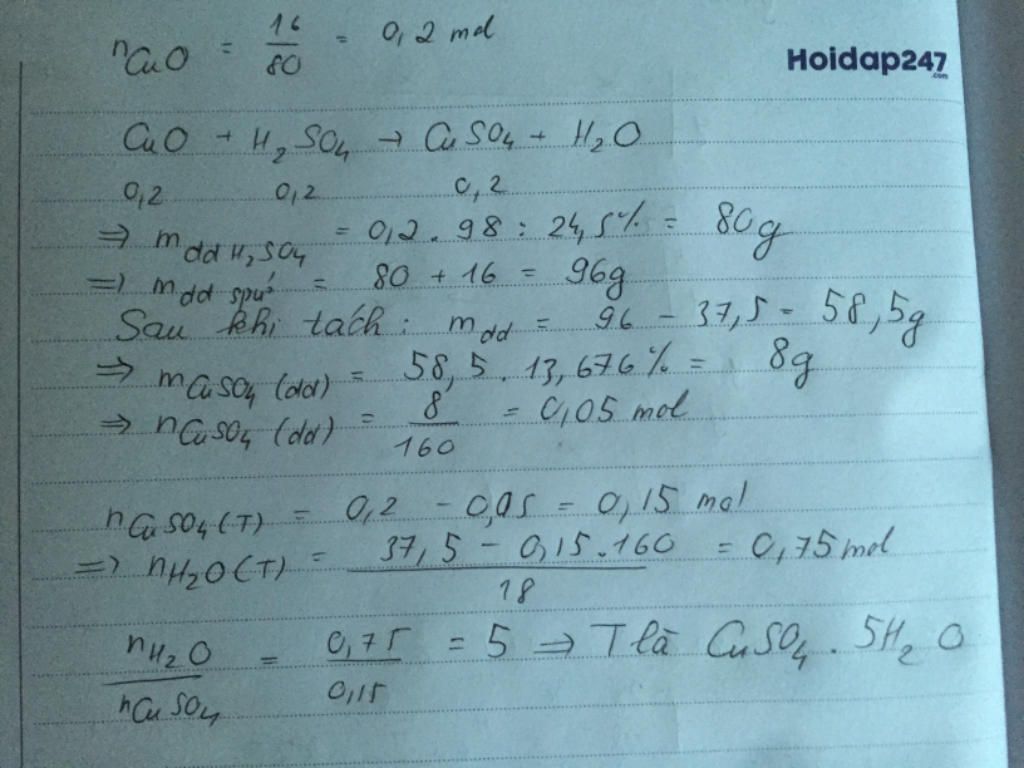 nCuO = 16/80 = 0,2 mol
Hoidap247
.com
CuO + H2SO4 → CuSO4 + H2O
0,2 0,2 0,2
⇒ mdd H2SO4 = 0,2 . 98 : 24,5% = 80g
⇒ mdd spư = 80 + 16 = 96g
Sau khi tách : mdd = 96 - 37,5 = 58,5g
⇒ mCuSO4 (dd) = 58,5 . 13,676% = 8g
⇒ nCuSO4 (dd) = 8/160 = 0,05 mol
nCuSO4 (T) = 0,2 - 0,05 = 0,15 mol
⇒ nH2O (T) = (37,5 - 0,15.160)/18 = 0,75 mol
nH2O/nCuSO4 = 0,75/0,15 = 5 ⇒ T là CuSO4 . 5H2O